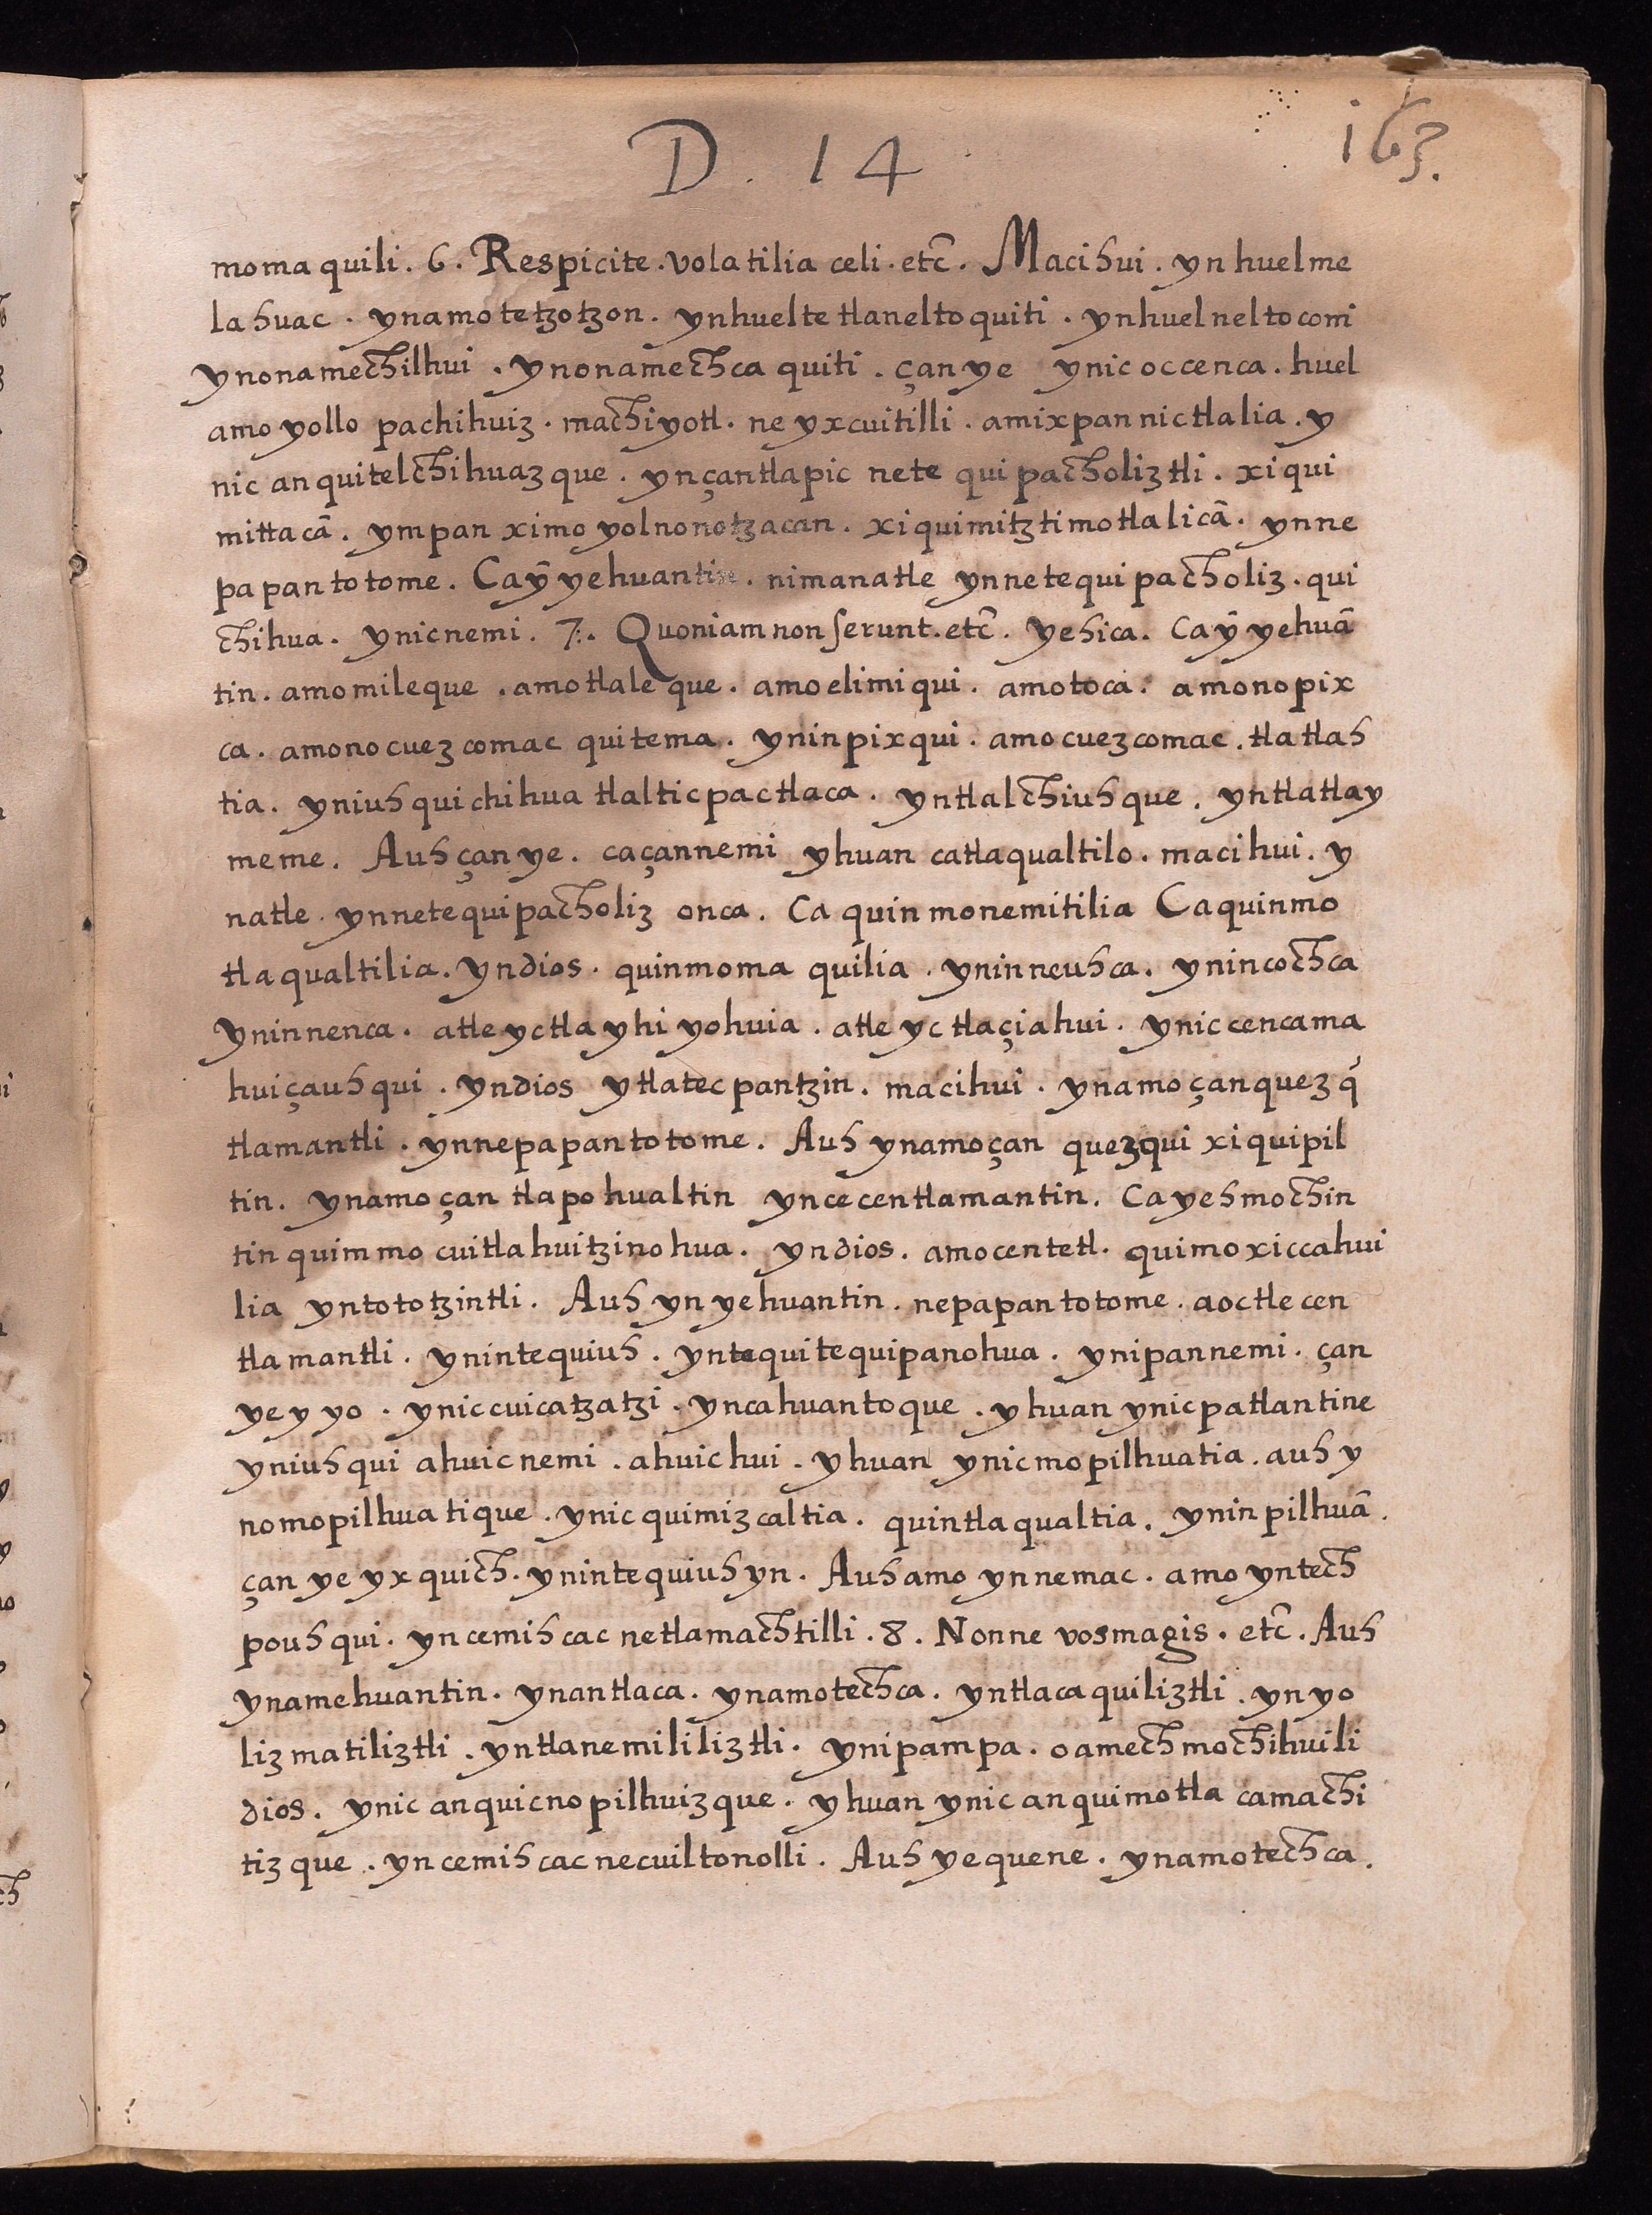 D. 14
163.
moma quili. 6. Respicite. volatilia celi. etc̃. Macihui. yn huel me
lahuac. ynamo tetzotzon. ynhuelte tlaneltoquiti. ynhuel neltoconi
ynonamechilhui. ynonamechca quiti. çan ye ynic occenca. huel
amo yollo pachihuiz. machiyotl. ne yxcuitilli. amixpan nictlalia. y
nic anquitelchihuazque. ynçantlapic nete quipacholiztli. xiqui
mittacã. ympan ximo yolnonotzacan. xiquimitztimotlalicã. ynne
papan totome. Caỹ yehuantin. nimanatle ynnetequipacholiz. qui
chihua. ynicnemi. 7. Quoniam non serunt. etc̃. yehica. Caỹ yehuã
tin. amomileque. amotlaleque. amoelimiqui. amotoca. amonopix
ca. amonocuezcomac quitema. yninpixqui. amocuezcomac. tlatlah
tia. yniuhquichihua tlalticpactlaca. yntlalchiuhque. yntlatlay
meme. Auh çan ye. caçannemi yhuan catlaqualtilo. macihui. y
natle. ynnetequipacholiz onca. Ca quinmonemitilia Caquinmo
tlaqualtilia. yndios. quinmoma quilia. yninneuhca. ynincochca
yninnenca. atle yctlayhiyohuia. atle yc tlaçiahui. ynic cencama
huiçauhqui. yndios ytlatecpantzin. macihui. ynamoçanquezq́
tlamantli. ynnepapan totome. Auh ynamoçan quezqui xiquipil
tin. ynamoçan tlapohualtin yncecentlamantin. Cayehmochin
tin quimmo cuitlahuitzinohua. yndios. amocentetl. quimoxiccahui
lia yntototzintli. Auh yn yehuantin. nepapan totome. aoctle cen
tlamantli. ynintequiuh. yntequitequipanohua. ynipannemi. çan
ye y yo. ynic cuicatzatzi. yncahuantoque. yhuan ynicpatlantine
yniuhqui ahuicnemi. ahuichui. yhuan ynicmopilhuatia. auh y
nomopilhuatique. ynic quimizcaltia. quintlaqualtia. yninpilhuã.
çan ye yxquich. ynintequiuh yn. Auh amo ynnemac. amo yntech
pouhqui. yn cemihcac netlamachtilli. 8. Nonne vos magis. etc̃. Auh
ynamehuantin. ynantlaca. ynamotechca. yntlacaquiliztli. yn yo
lizmatiliztli. yntlanemililiztli. ynipampa. oamechmochihuili
dios. ynic anquicnopilhuizque. yhuan ynic anquimotla camachi
tizque. yn cemihcac necuiltonolli. Auh yequene. ynamotechca.